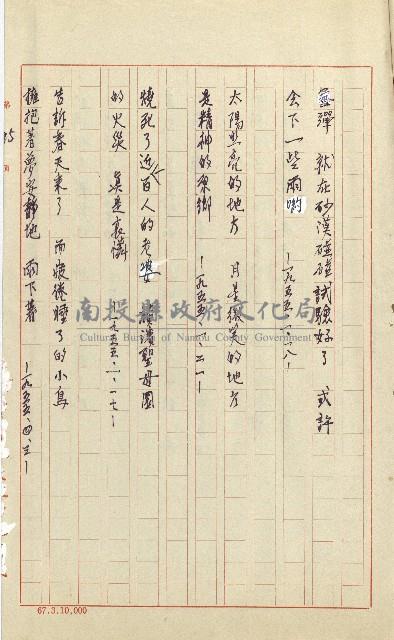 氫彈　就在砂漠碰碰試驗好了　或許
会下一些雨喲
—一九五五、一、八—
太陽照亮的地方　月是微笑的地方
是精神的家鄉
—一九五五、一、二一—
燒死了近百人的老婆　橫濱聖母園
的火災　真是哀憐
—一九五五、二、一七—
告訴春天來了　而疲倦睡了的小鳥
擁抱著夢安靜地　雨下著
—一九五五、四、三—
第
頁
南投縣政府文化局
Cultural Bureau of Nantou County Government
67.3.10,000